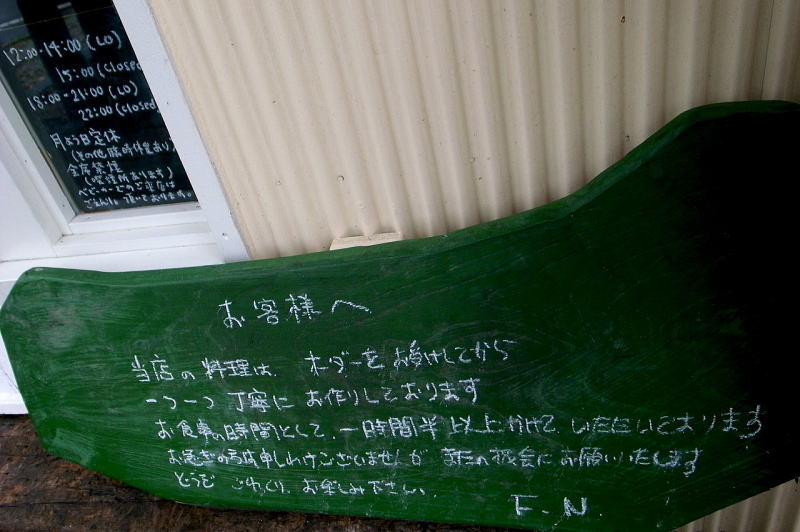 12:00-14:00 (LO)
15:00 (closed
18:00-21:00 (LO)
22:00 (closed
月よう日定休
(その他臨時休業あり)
全席禁煙
(喫煙所あります)
お客様へ
当店の料理は、オーダーをお受けしてから
一つ一つ丁寧にお作りしております
お食事の時間として、一時間半以上かけていただいております
お急ぎの方は申しわけございませんがまたの機会にお願いいたします
どうぞごゆっくりお楽しみ下さい。
F.N